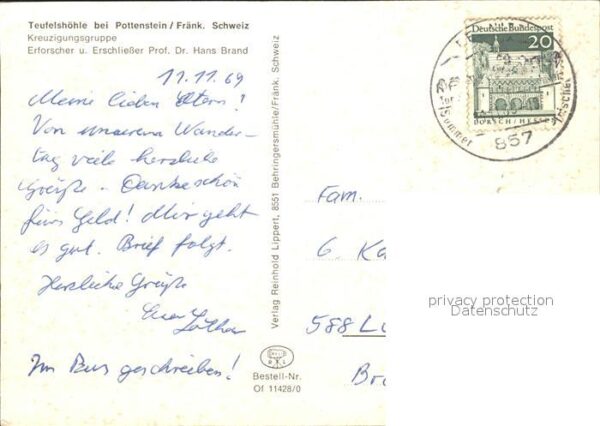 Teufelshöhle bei Pottenstein / Fränk. Schweiz
Kreuzigungsgruppe
Erforscher u. Erschließer Prof. Dr. Hans Brand
11.11.69
Meine lieben Eltern!
Von unserem Wander-
tag viele herzliche
Grüße. Dankeschön
fürs Geld! Mir geht
es gut. Brief folgt.
Herzliche Grüße
Euer Lothar
Im Bus geschrieben!
Verlag Reinhold Lippert, 8551 Behringersmühle/Fränk. Schweiz
Bestell-Nr.
Of 11428/0
Deutsche Bundespost
20
LORSCH/HESSEN
Sommer
857
Fam.
6. Ka
588 Lü
privacy protection
Datenschutz